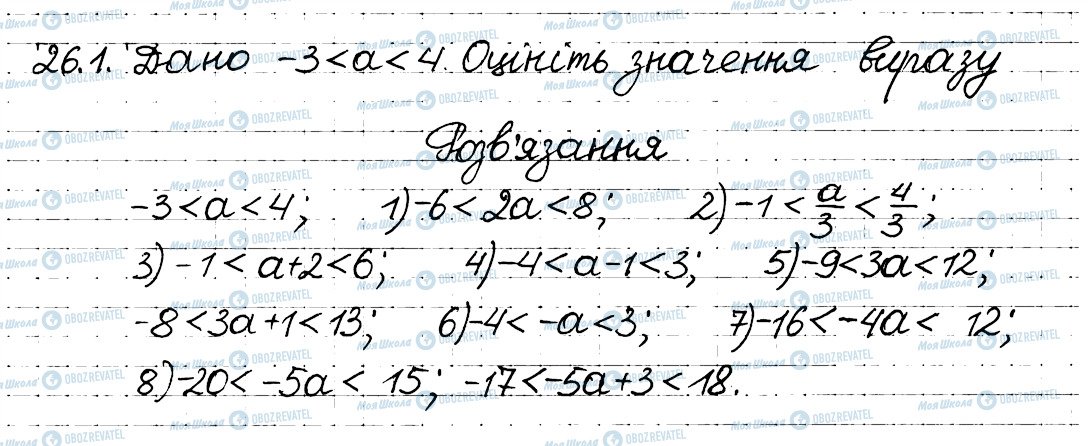 26.1. Дано -3<a<4. Оцініть значення виразу
Розв'язання
-3<a<4; 1)-6<2a<8; 2)-1<a/3<4/3;
3)-1<a+2<6; 4)-4<a-1<3; 5)-9<3a<12;
-8<3a+1<13; 6)-4<-a<3; 7)-16<-4a< 12;
8)-20<-5a< 15; -17<-5a+3<18.